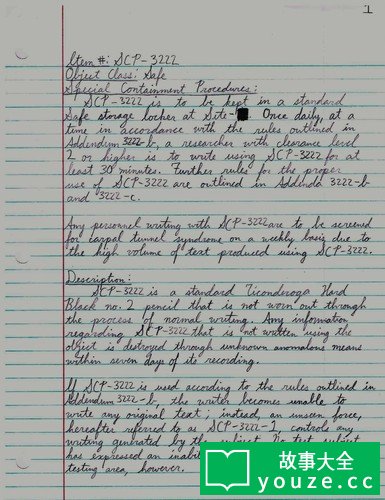 1
Item #: SCP-3222
Object Class: Safe
Special Containment Procedures:
SCP-3222 is to be kept in a standard
Safe storage locker at Site-█. Once daily, at a
time in accordance with the rules outlined in
Addendum 3222-b, a researcher with clearance level
2 or higher is to write using SCP-3222 for at
least 30 minutes. Further rules for the proper
use of SCP-3222 are outlined in Addenda 3222-b
and 3222-c.
Any personnel writing with SCP-3222 are to be screened
for carpal tunnel syndrome on a weekly basis due to
the high volume of text produced using SCP-3222.
Description:
SCP-3222 is a standard Ticonderoga Hard
Black no. 2 pencil that is not worn out through
the process of normal writing. Any information
regarding SCP-3222 that is not written using the
object is destroyed through unknown anomalous means
within seven days of its recording.
If SCP-3222 is used according to the rules outlined in
Addendum 3222-b, the writer becomes unable to
write any original text; instead, an unseen force,
hereafter referred to as SCP-3222-1, controls any
writing generated by the subject. No test subject
has expressed an
testing area, however.
故事大全
youze.cc